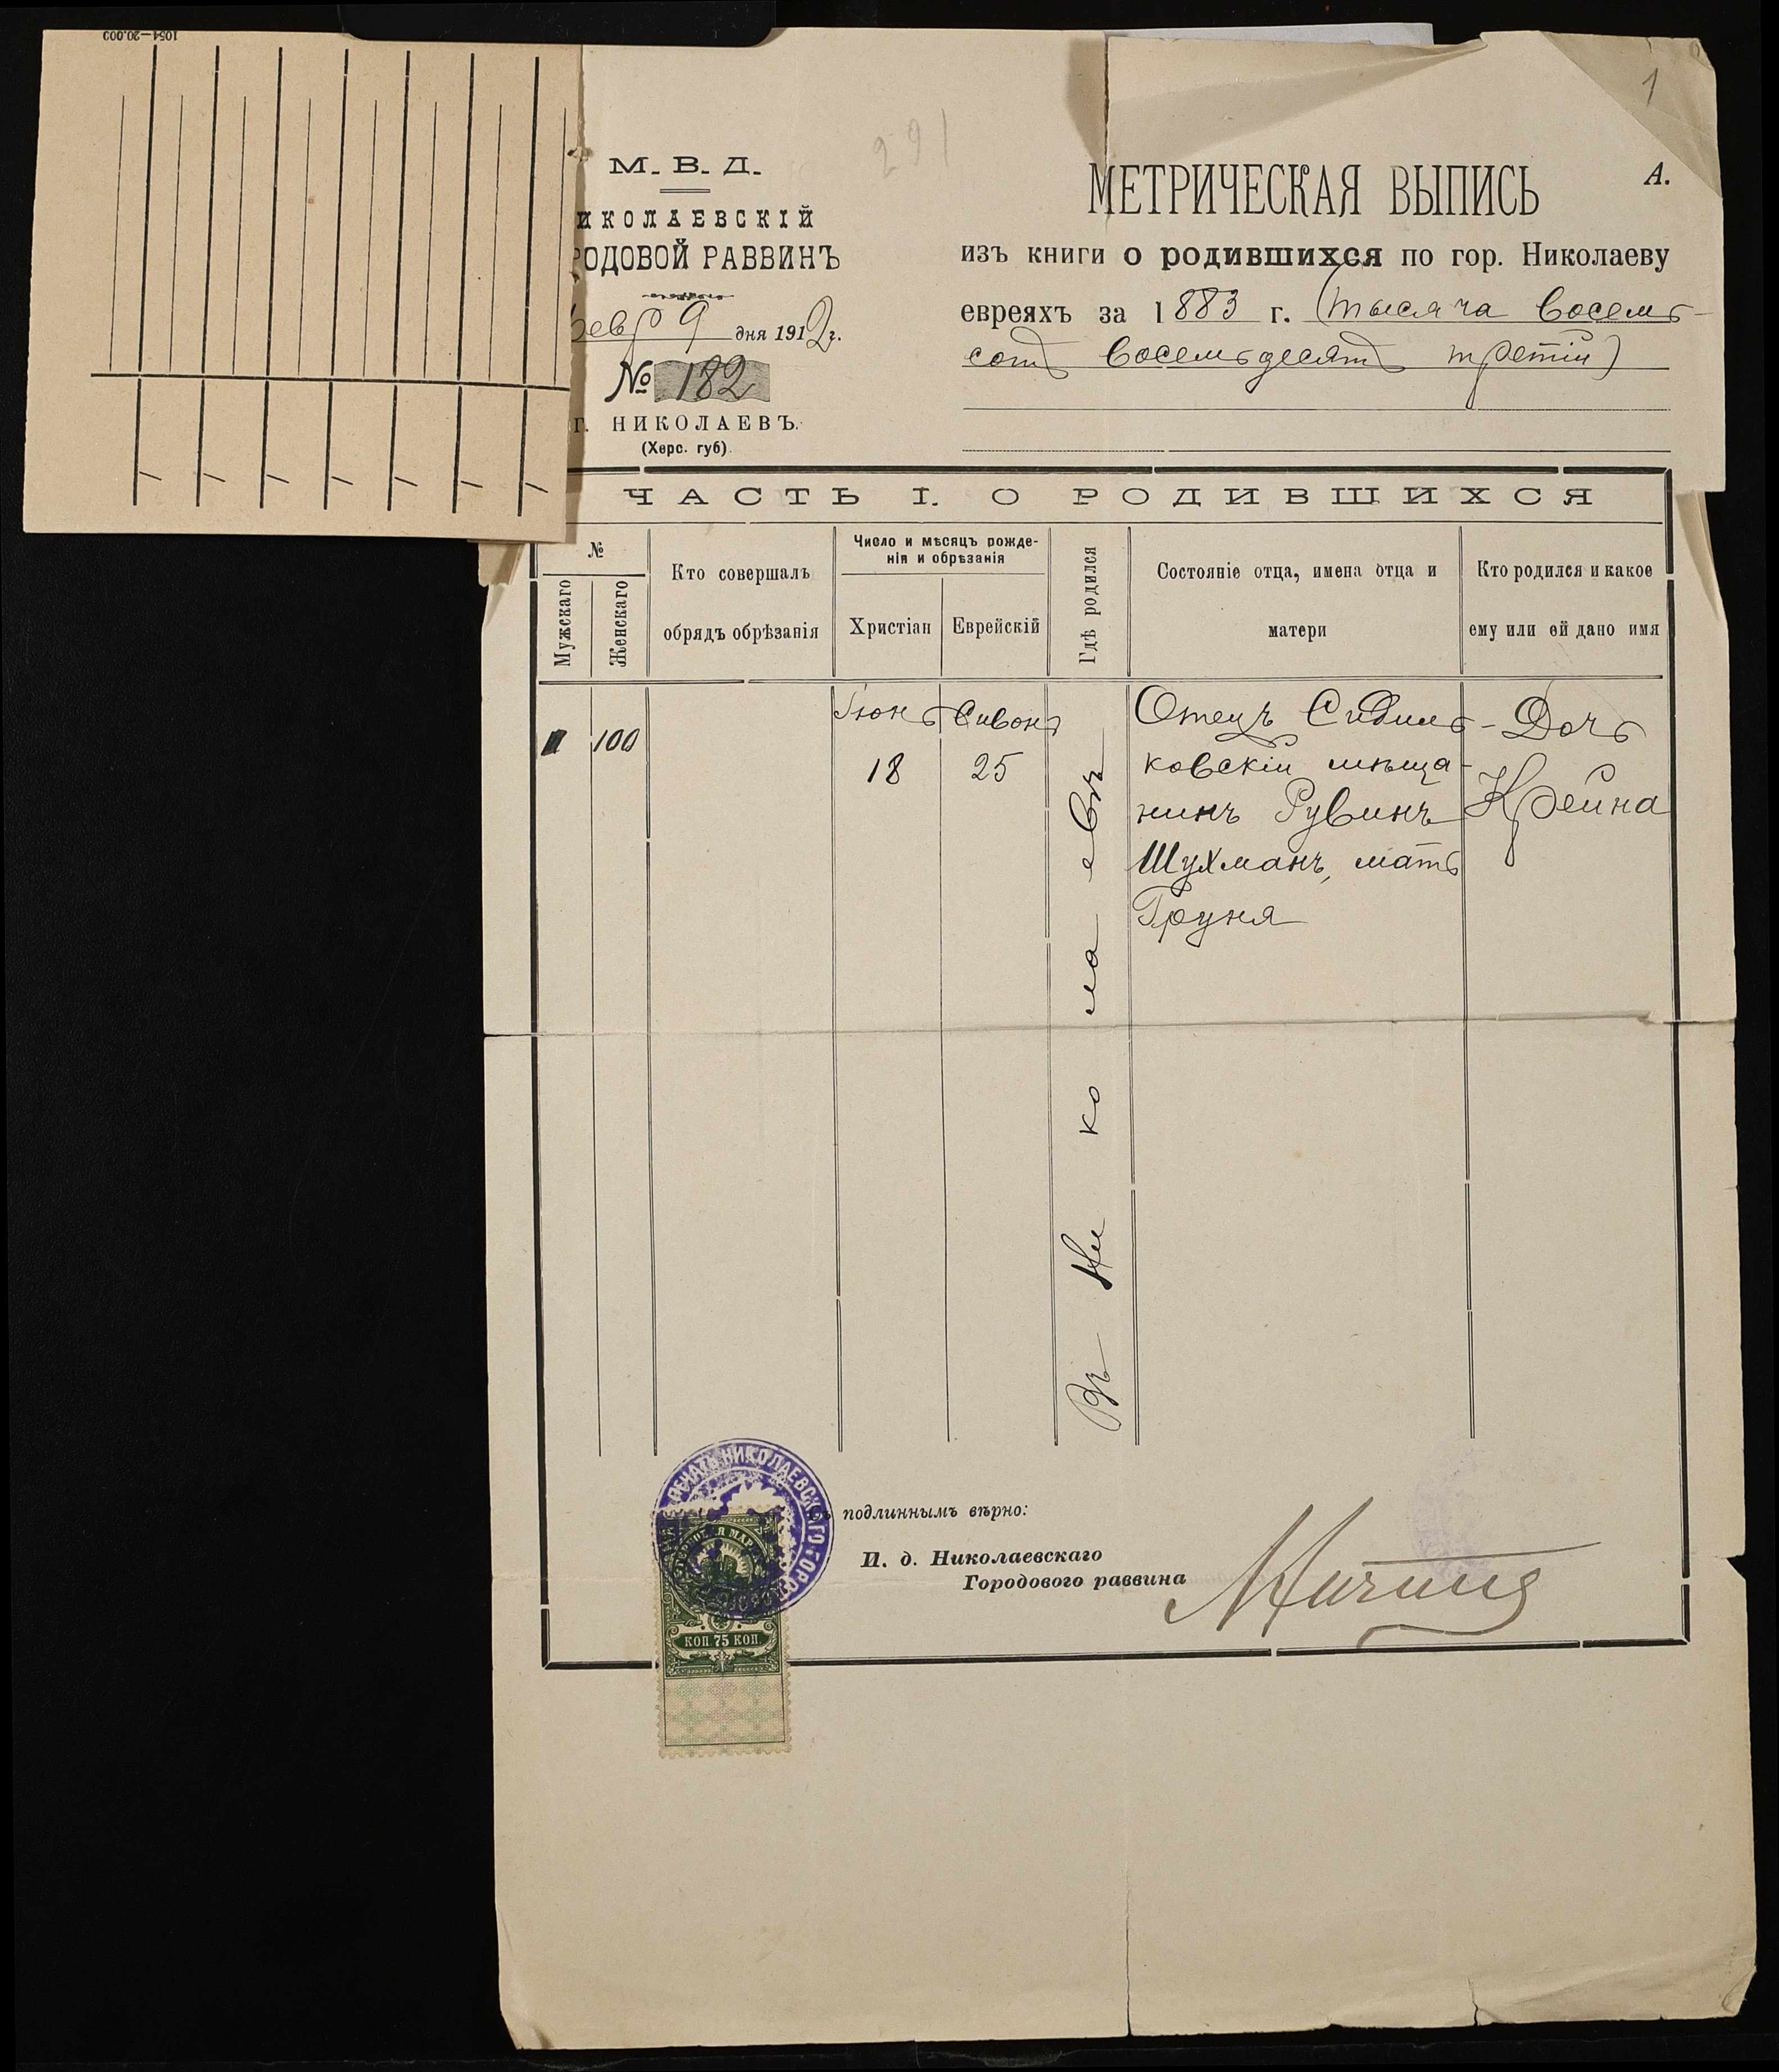 1051—20.000
1
291
М. В. Д.
ИКОЛАЕВСКІЙ
РОДОВОЙ РАВВИНЪ
февр 9 дня 1912 г.
№ 182
г. НИКОЛАЕВЪ.
(Херс. губ).
А.
МЕТРИЧЕСКАЯ ВЫПИСЬ
изъ книги о родившихся по гор. Николаеву
евреяхъ за 1883 г. (тысяча восемь-
сотъ восемьдесятъ третій)
ЧАСТЬ I. О РОДИВШИХСЯ
№
Мужскаго
Женскаго
Кто совершалъ
обрядъ обрѣзанія
Число и мѣсяцъ рожде-
нія и обрѣзанія
Христіан
Еврейскій
Гдѣ родился
Состояніе отца, имена отца и
матери
Кто родился и какое
ему или ей дано имя
100
Іюнь
18
Сивонъ
25
Въ Николаевѣ
Отецъ
ковскій мѣща-
нинъ Рувинъ
Шухманъ, мать
Груня
Дочь
Крейна
подлиннымъ вѣрно:
И. д. Николаевскаго
Городового раввина
ПЕЧАТЬ НИКОЛАЕВСКАГО ГОРО
КОП. 75 КОП.